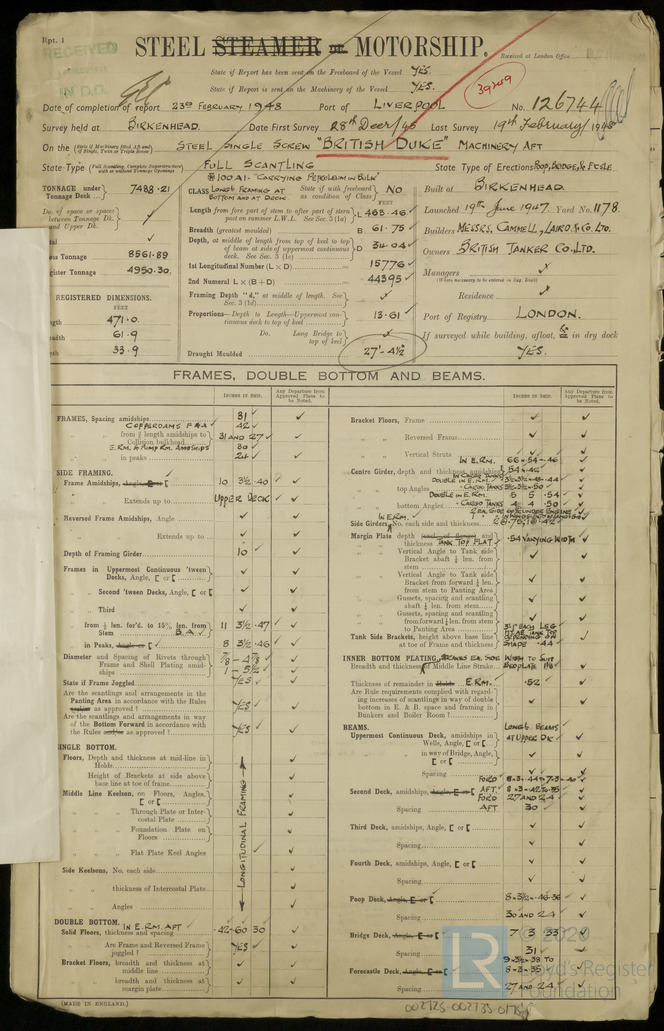 Rpt. 1
RECEIVED
IN D.O.
STEEL STEAMER or MOTORSHIP.
Received at London Office
State if Report has been sent on the Freeboard of the Vessel YES.
State if Report is sent on the Machinery of the Vessel YES.
39249
Date of completion of report 23rd FEBRUARY 1948 Port of LIVERPOOL No. 126744
Survey held at BIRKENHEAD. Date First Survey 28th Decr/45 Last Survey 19th February 1948
On the (State if Machinery fitted Aft and if Single, Twin or Triple Screw) STEEL SINGLE SCREW "BRITISH DUKE" MACHINERY AFT
State Type (Full Scantling, Complete Superstructure with or without Tonnage Openings) FULL SCANTLING State Type of Erections POOP, BRIDGE, & FCSLE.
TONNAGE under Tonnage Deck 7488.21
Do. of space or spaces between Tonnage Dk. and Upper Dk.
Total
Gross Tonnage 8561.89
Register Tonnage 4950.30
REGISTERED DIMENSIONS.
FEET
471.0
61.9
33.9
CLASS 100A1. "CARRYING PETROLEUM IN BULK" LONGL FRAMING AT BOTTOM AND AT DECK.
State if with freeboard as condition of Class NO
FEET
Length from fore part of stem to after part of stern post on summer L.W.L. See Sec. 3 (1a) L 465.46
Breadth (greatest moulded) B 61.75
Depth, at middle of length from top of keel to top of beam at side of uppermost continuous deck. See Sec. 3 (1c) D 34.04
1st Longitudinal Number (L × D) 15776
2nd Numeral L × (B + D) 44395
Framing Depth "d," at middle of length. See Sec. 3 (1d)
Proportions—Depth to Length—Uppermost continuous deck to top of keel 13.61
Do. Long Bridge to top of keel
Draught Moulded 27'-4½
Built at BIRKENHEAD.
Launched 19th June 1947. Yard No. 1178.
Builders MESSRS. CAMMELL, LAIRD & CO. LTD.
Owners BRITISH TANKER CO. LTD.
Managers
(Where necessary to be entered in Reg. Book)
Residence
Port of Registry LONDON.
If surveyed while building, afloat, or in dry dock
YES.
FRAMES, DOUBLE BOTTOM AND BEAMS.
INCHES IN SHIP.
Any Departure from Approved Plans to be Noted.
FRAMES, Spacing amidships 31
COFFERDAMS F & A 42
from ⅗ length amidships to Collision bulkhead 31 AND 27
E. RM. & PUMP RM. AMIDSHIPS 30
in peaks 24
SIDE FRAMING.
Frame Amidships, Angle, [ or [ 10 3½ .40
Extends up to UPPER DECK
Reversed Frame Amidships, Angle
Extends up to
Depth of Framing Girder 10
Frames in Uppermost Continuous 'tween Decks, Angle, [ or [
Second 'tween Decks, Angle, [ or [
Third
from ⅗ len. for'd. to 15% len. from Stem 11 3½ .47
in Peaks, Angle or [ 8 3½ .46
Diameter and Spacing of Rivets through Frame and Shell Plating amidships
State if Frame Joggled YES
Are the scantlings and arrangements in the Panting Area in accordance with the Rules and/or as approved? YES
Are the scantlings and arrangements in way of the Bottom Forward in accordance with the Rules and/or as approved? YES
SINGLE BOTTOM.
Floors, Depth and thickness at mid-line in Holds
Height of Brackets at side above base at toe of frame
Middle Line Keelson, on Floors, Angles, [ or [
Through Plate or Intercostal Plate
Foundation Plate on Floors
Flat Plate Keel Angles
Side Keelsons, No. each side
thickness of Intercostal Plate
Angles
LONGITUDINAL FRAMING
DOUBLE BOTTOM. IN E. RM. AFT
Solid Floors, thickness and spacing .42-.60 30
Are Frame and Reversed Frame joggled? YES
Bracket Floors, breadth and thickness at middle line
breadth and thickness at margin plate
Bracket Floors, Frame
Reversed Frame
Vertical Struts
Centre Girder, depth and thickness amidships
IN E.RM. 66-.54-.46
top Angles
bottom Angles
DOUBLE IN E.RM. 5 5 .54
CARGO TANKS 4 4 .50
Side Girders, No. each side and thickness
Margin Plate depth and thickness TANK TOP FLAT .54 VARYING WIDTH
Vertical Angle to Tank side Bracket abaft ¼ len. from stem
Vertical Angle to Tank side Bracket from forward ¼ len. from stem to Panting Area
Gussets, spacing and scantling abaft ¼ len. from stem
Gussets, spacing and scantling from forward ¼ len. from stem to Panting Area
Tank Side Brackets, height above base line at toe of Frame and thickness
INNER BOTTOM PLATING, STRAKES EA. SIDE
Breadth and thickness of Middle Line Strake WIDTH TO SUIT BEDPLATE
Thickness of remainder in Holds E.RM. .52
Are Rule requirements complied with regarding increases of scantlings in way of double bottom in E. & B. space and framing in Bunkers and Boiler Room?
BEAMS.
Uppermost Continuous Deck, amidships in Wells, Angle, [ or [ LONGL BEAMS AT UPPER DK
in way of Bridge, Angle, [ or [
Spacing
Second Deck, amidships, Angle, [ or [
Spacing FORD 27 AND 24 AFT 30
Third Deck, amidships, Angle, [ or [
Spacing
Fourth Deck, amidships, Angle, [ or [
Spacing
Poop Deck, Angle, [ or [ 8-3½-.46-.36
Spacing 30 AND 24
Bridge Deck, Angle, [ or [ 7 3 .33
Spacing 31
Forecastle Deck, Angle, [ or [ 9-3½-.38 TO 8-3-.35
Spacing 27 AND 24
(MADE IN ENGLAND.)
LR
© 2020
Lloyd's Register
Foundation
002725-002733-0175